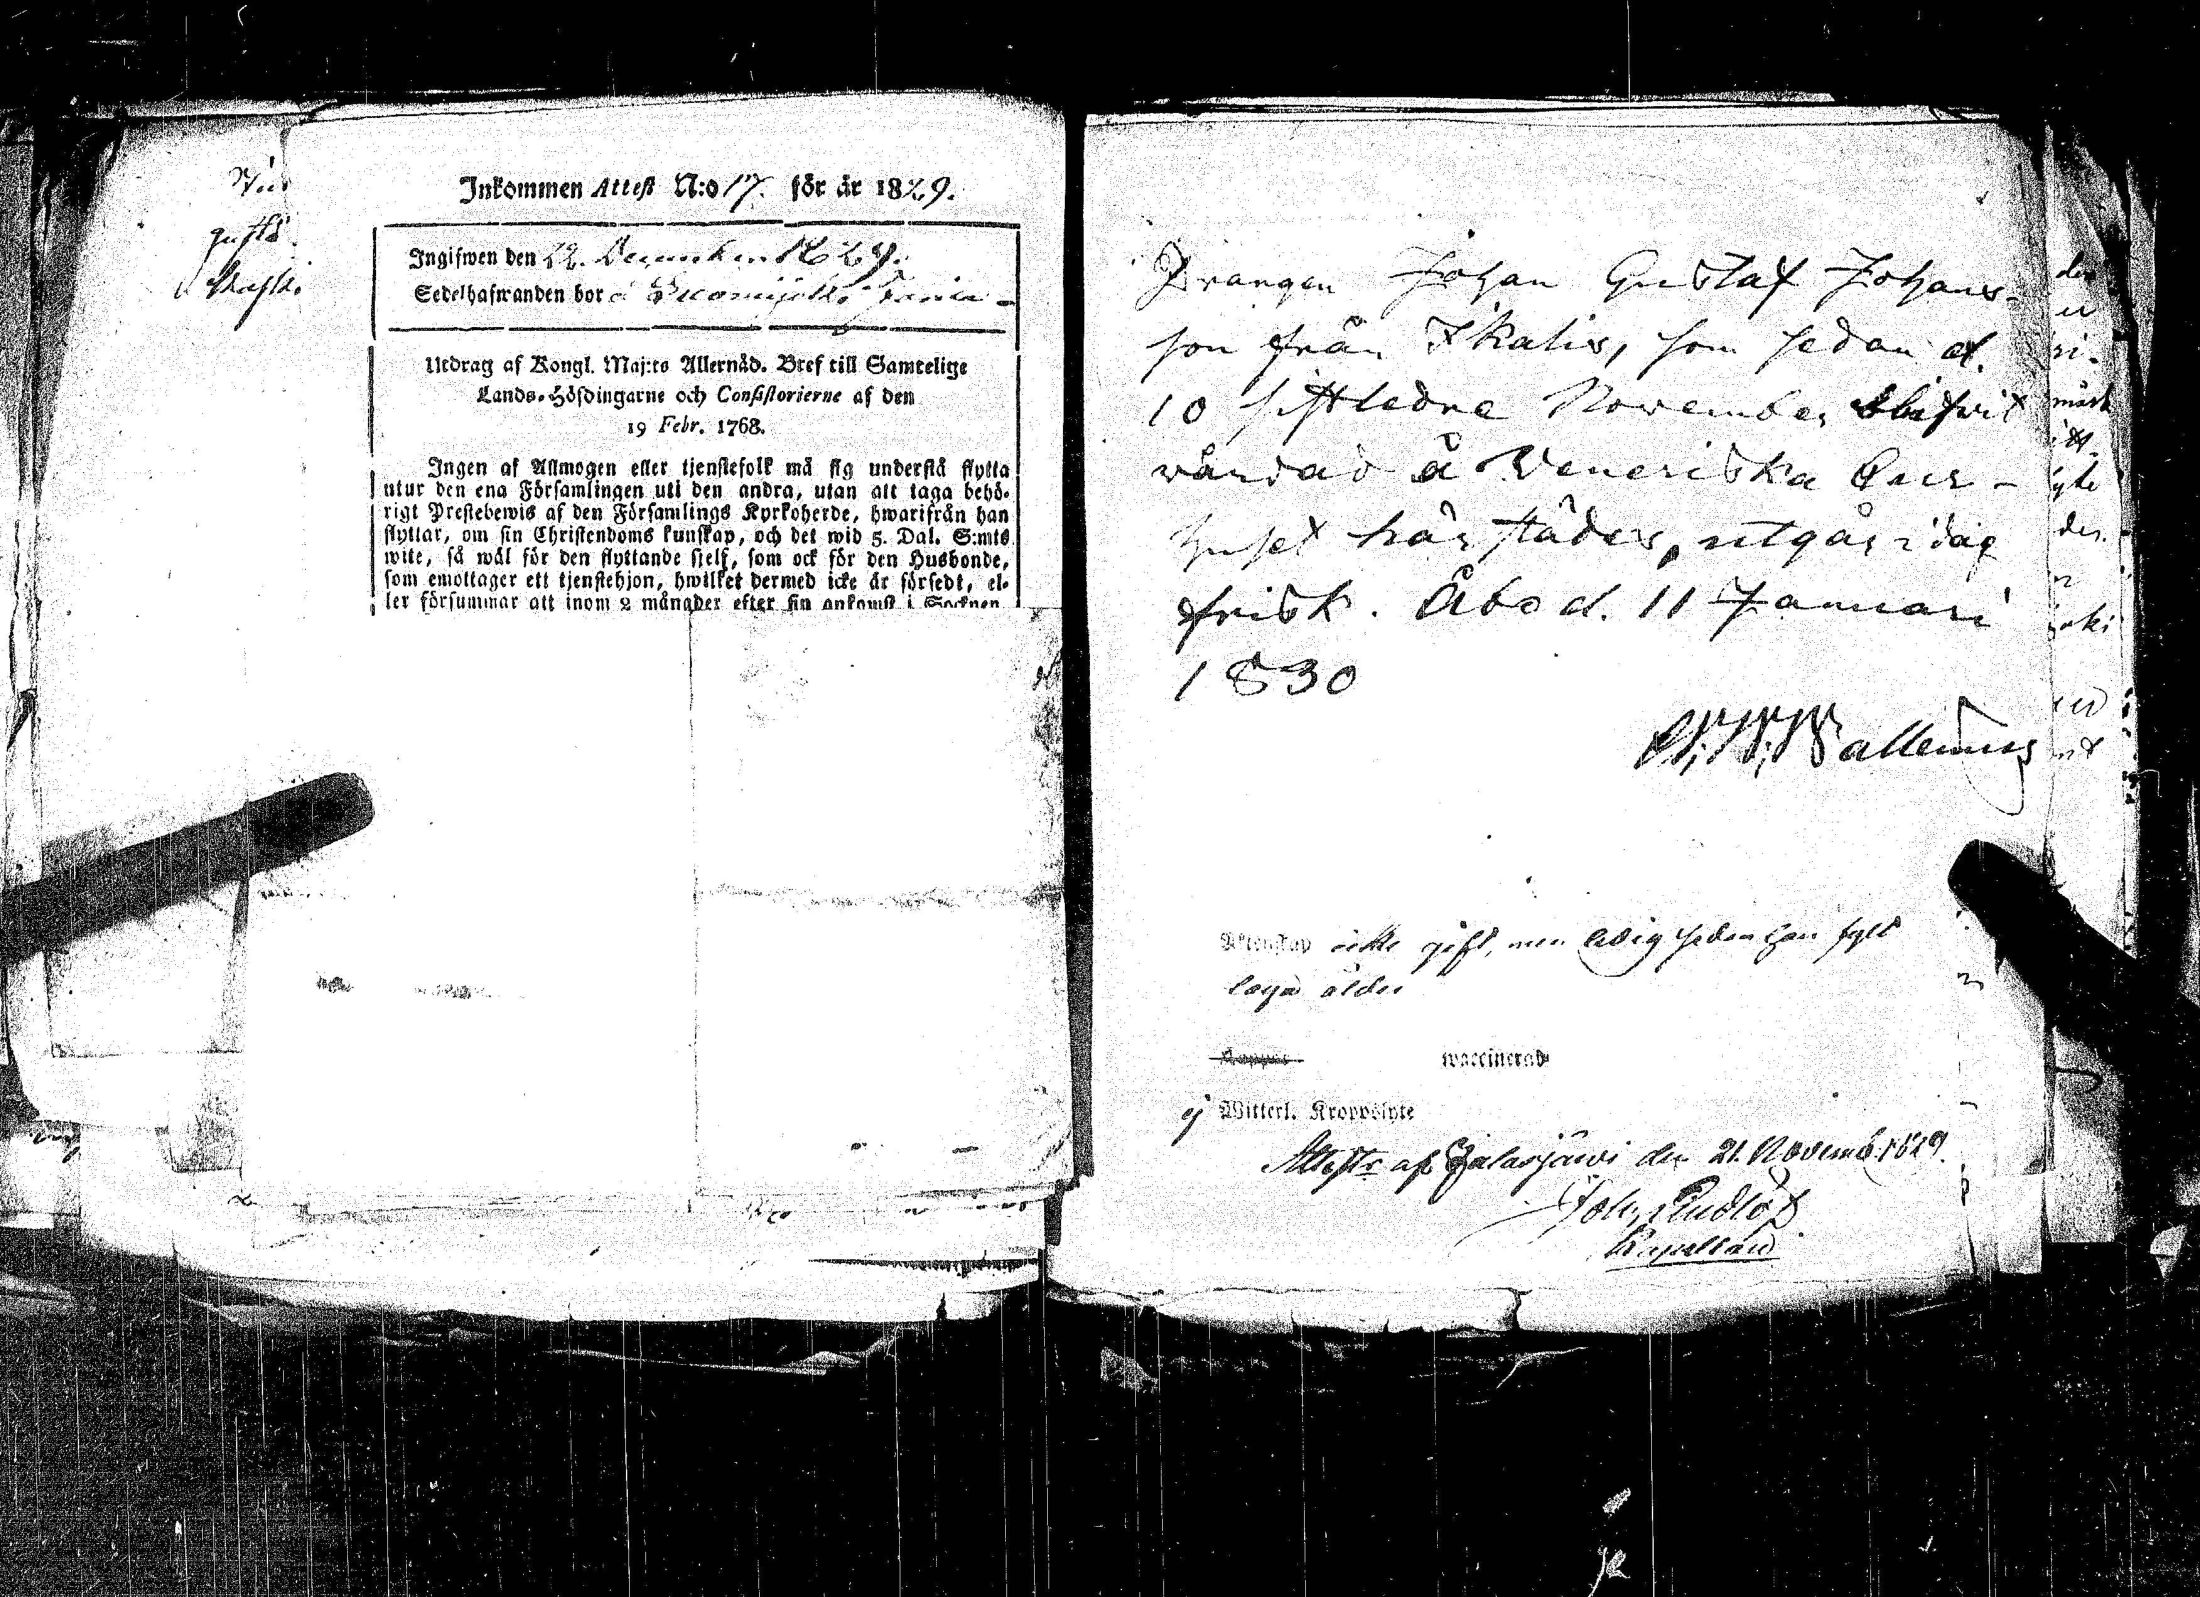 Inkommen Attest N:o 17. för år 1829.
Ingifwen den 22. December 1829.
Sedelhafwanden bor å
Utdrag af Kongl. Maj:ts Allernåd. Bref till Samtelige
Lands-Höfdingarne och Consistorierne af den
19 Febr. 1768.
Ingen af Allmogen eller tjenstefolk må sig understå flytta
utur den ena Församlingen uti den andra, utan att taga behö-
rigt Prestebewis af den Församlings Kyrkoherde, hwarifrån han
flyttar, om sin Christendoms kunskap, och det wid 5. Dal. S:mts
wite, så wäl för den flyttande sjelf, som ock för den Husbonde,
som emottager ett tjenstehjon, hwilket dermed icke är försedt, el-
ler försummar att inom 2 månader efter sin ankomst i Socknen
Drängen Johan Gustaf Johans-
son från Ikalis, som sedan d.
10 sistledne November blifvit
vårdad å Veneriska Cur-
huset härstädes, utgår idag
frisk. Åbo d. 11 Januari
1830
Wallenius
Äktenskap icke gift, men ledig sedan han fylt
laga ålder
Koppor waccinerad
ej Witterl. Kroppslyte
Attest: af Jalasjärvi den 21. Novemb. 1829.
Joh.
Kapellan